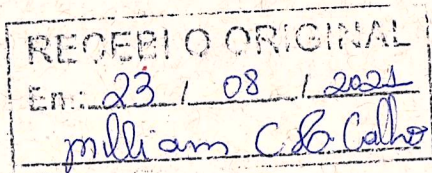 RECEBI O ORIGINAL
Em: 23 / 08 / 2021
William C